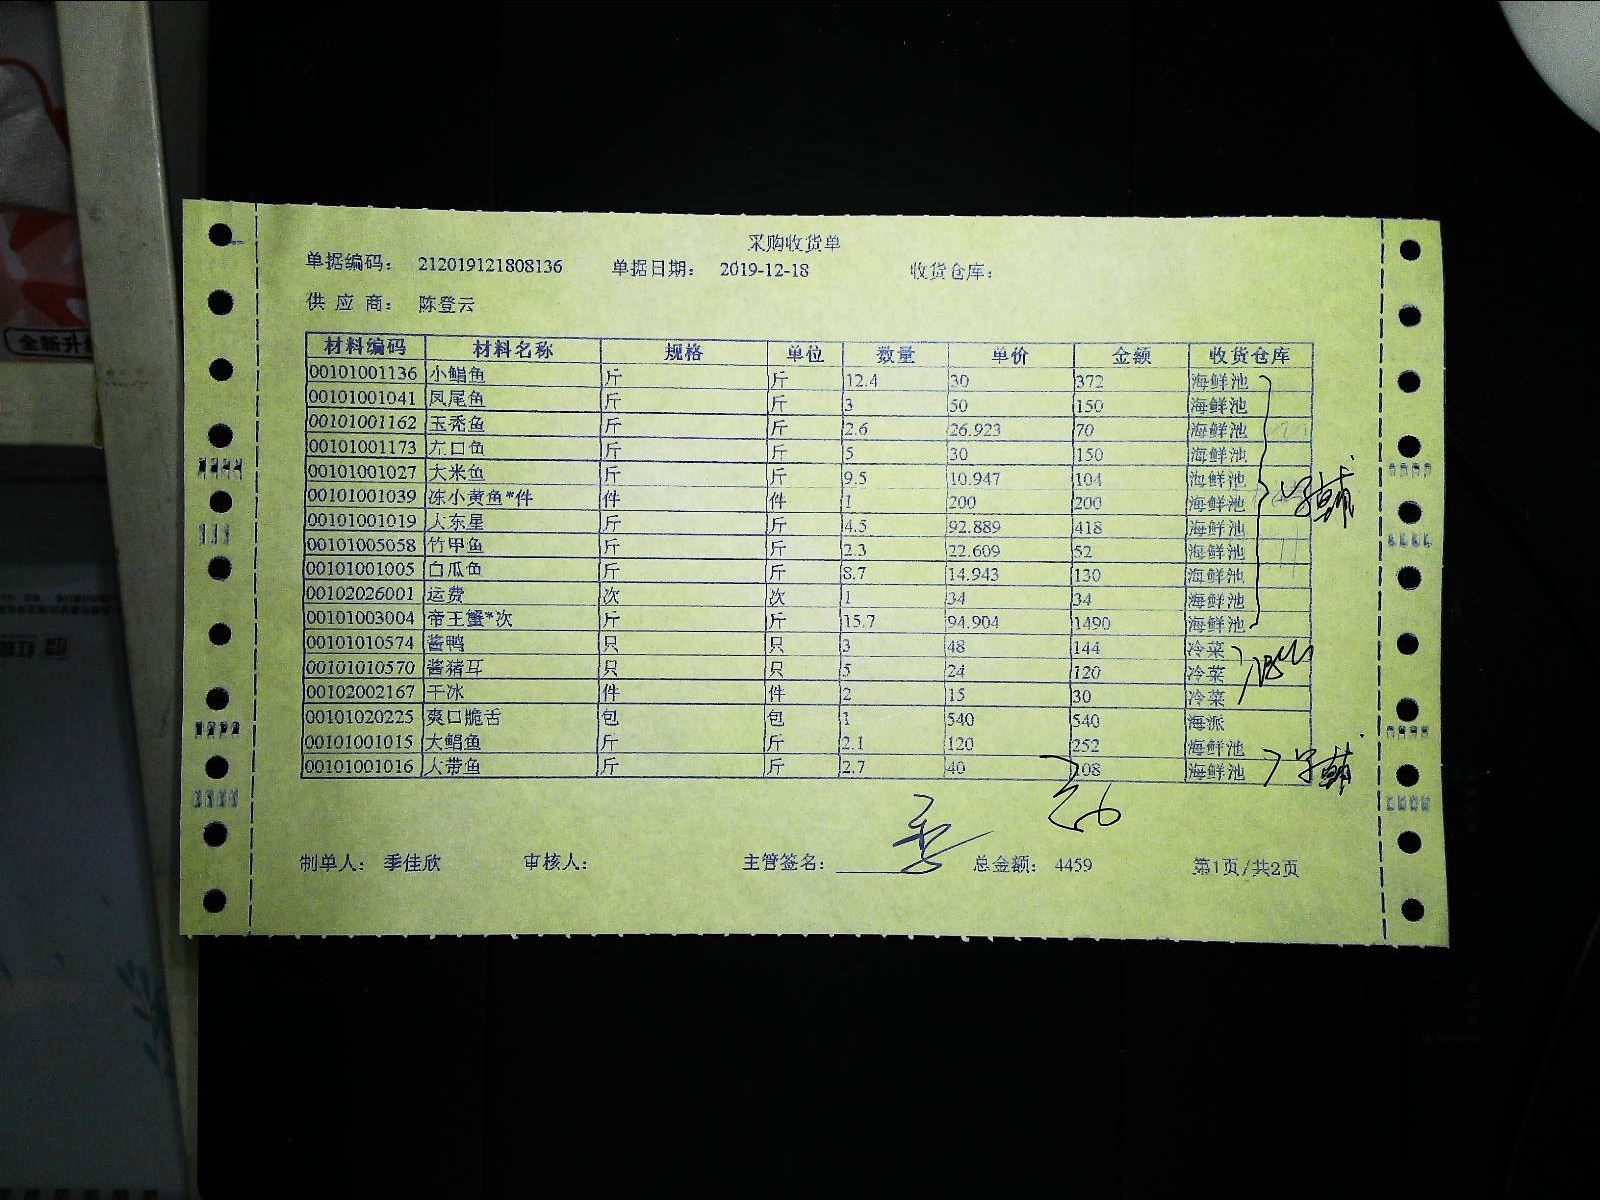 采购收货单
单据编码: 212019121808136 单据日期: 2019-12-18 收货仓库:
供应商: 陈登云
材料编码 材料名称 规格 单位 数量 单价 金额 收货仓库
00101001136 小鲳鱼 斤 斤 12.4 30 372 海鲜池
00101001041 凤尾鱼 斤 斤 3 50 150 海鲜池
00101001162 玉秃鱼 斤 斤 2.6 26.923 70 海鲜池
00101001173 左口鱼 斤 斤 5 30 150 海鲜池
00101001027 大米鱼 斤 斤 9.5 10.947 104 海鲜池
00101001039 冻小黄鱼*件 件 件 1 200 200 海鲜池
00101001019 大东星 斤 斤 4.5 92.889 418 海鲜池
00101005058 竹甲鱼 斤 斤 2.3 22.609 52 海鲜池
00101001005 白瓜鱼 斤 斤 8.7 14.943 130 海鲜池
00102026001 运费 次 次 1 34 34 海鲜池
00101003004 帝王蟹*次 斤 斤 15.7 94.904 1490 海鲜池
00101010574 酱鸭 只 只 3 48 144 冷菜
00101010570 酱猪耳 只 只 5 24 120 冷菜
00102002167 干冰 件 件 2 15 30 冷菜
00101020225 爽口脆舌 包 包 1 540 540 海派
00101001015 大鲳鱼 斤 斤 2.1 120 252 海鲜池
00101001016 大带鱼 斤 斤 2.7 40 108 海鲜池
制单人: 季佳欣 审核人: 主管签名: 总金额: 4459 第1页/共2页
全新升